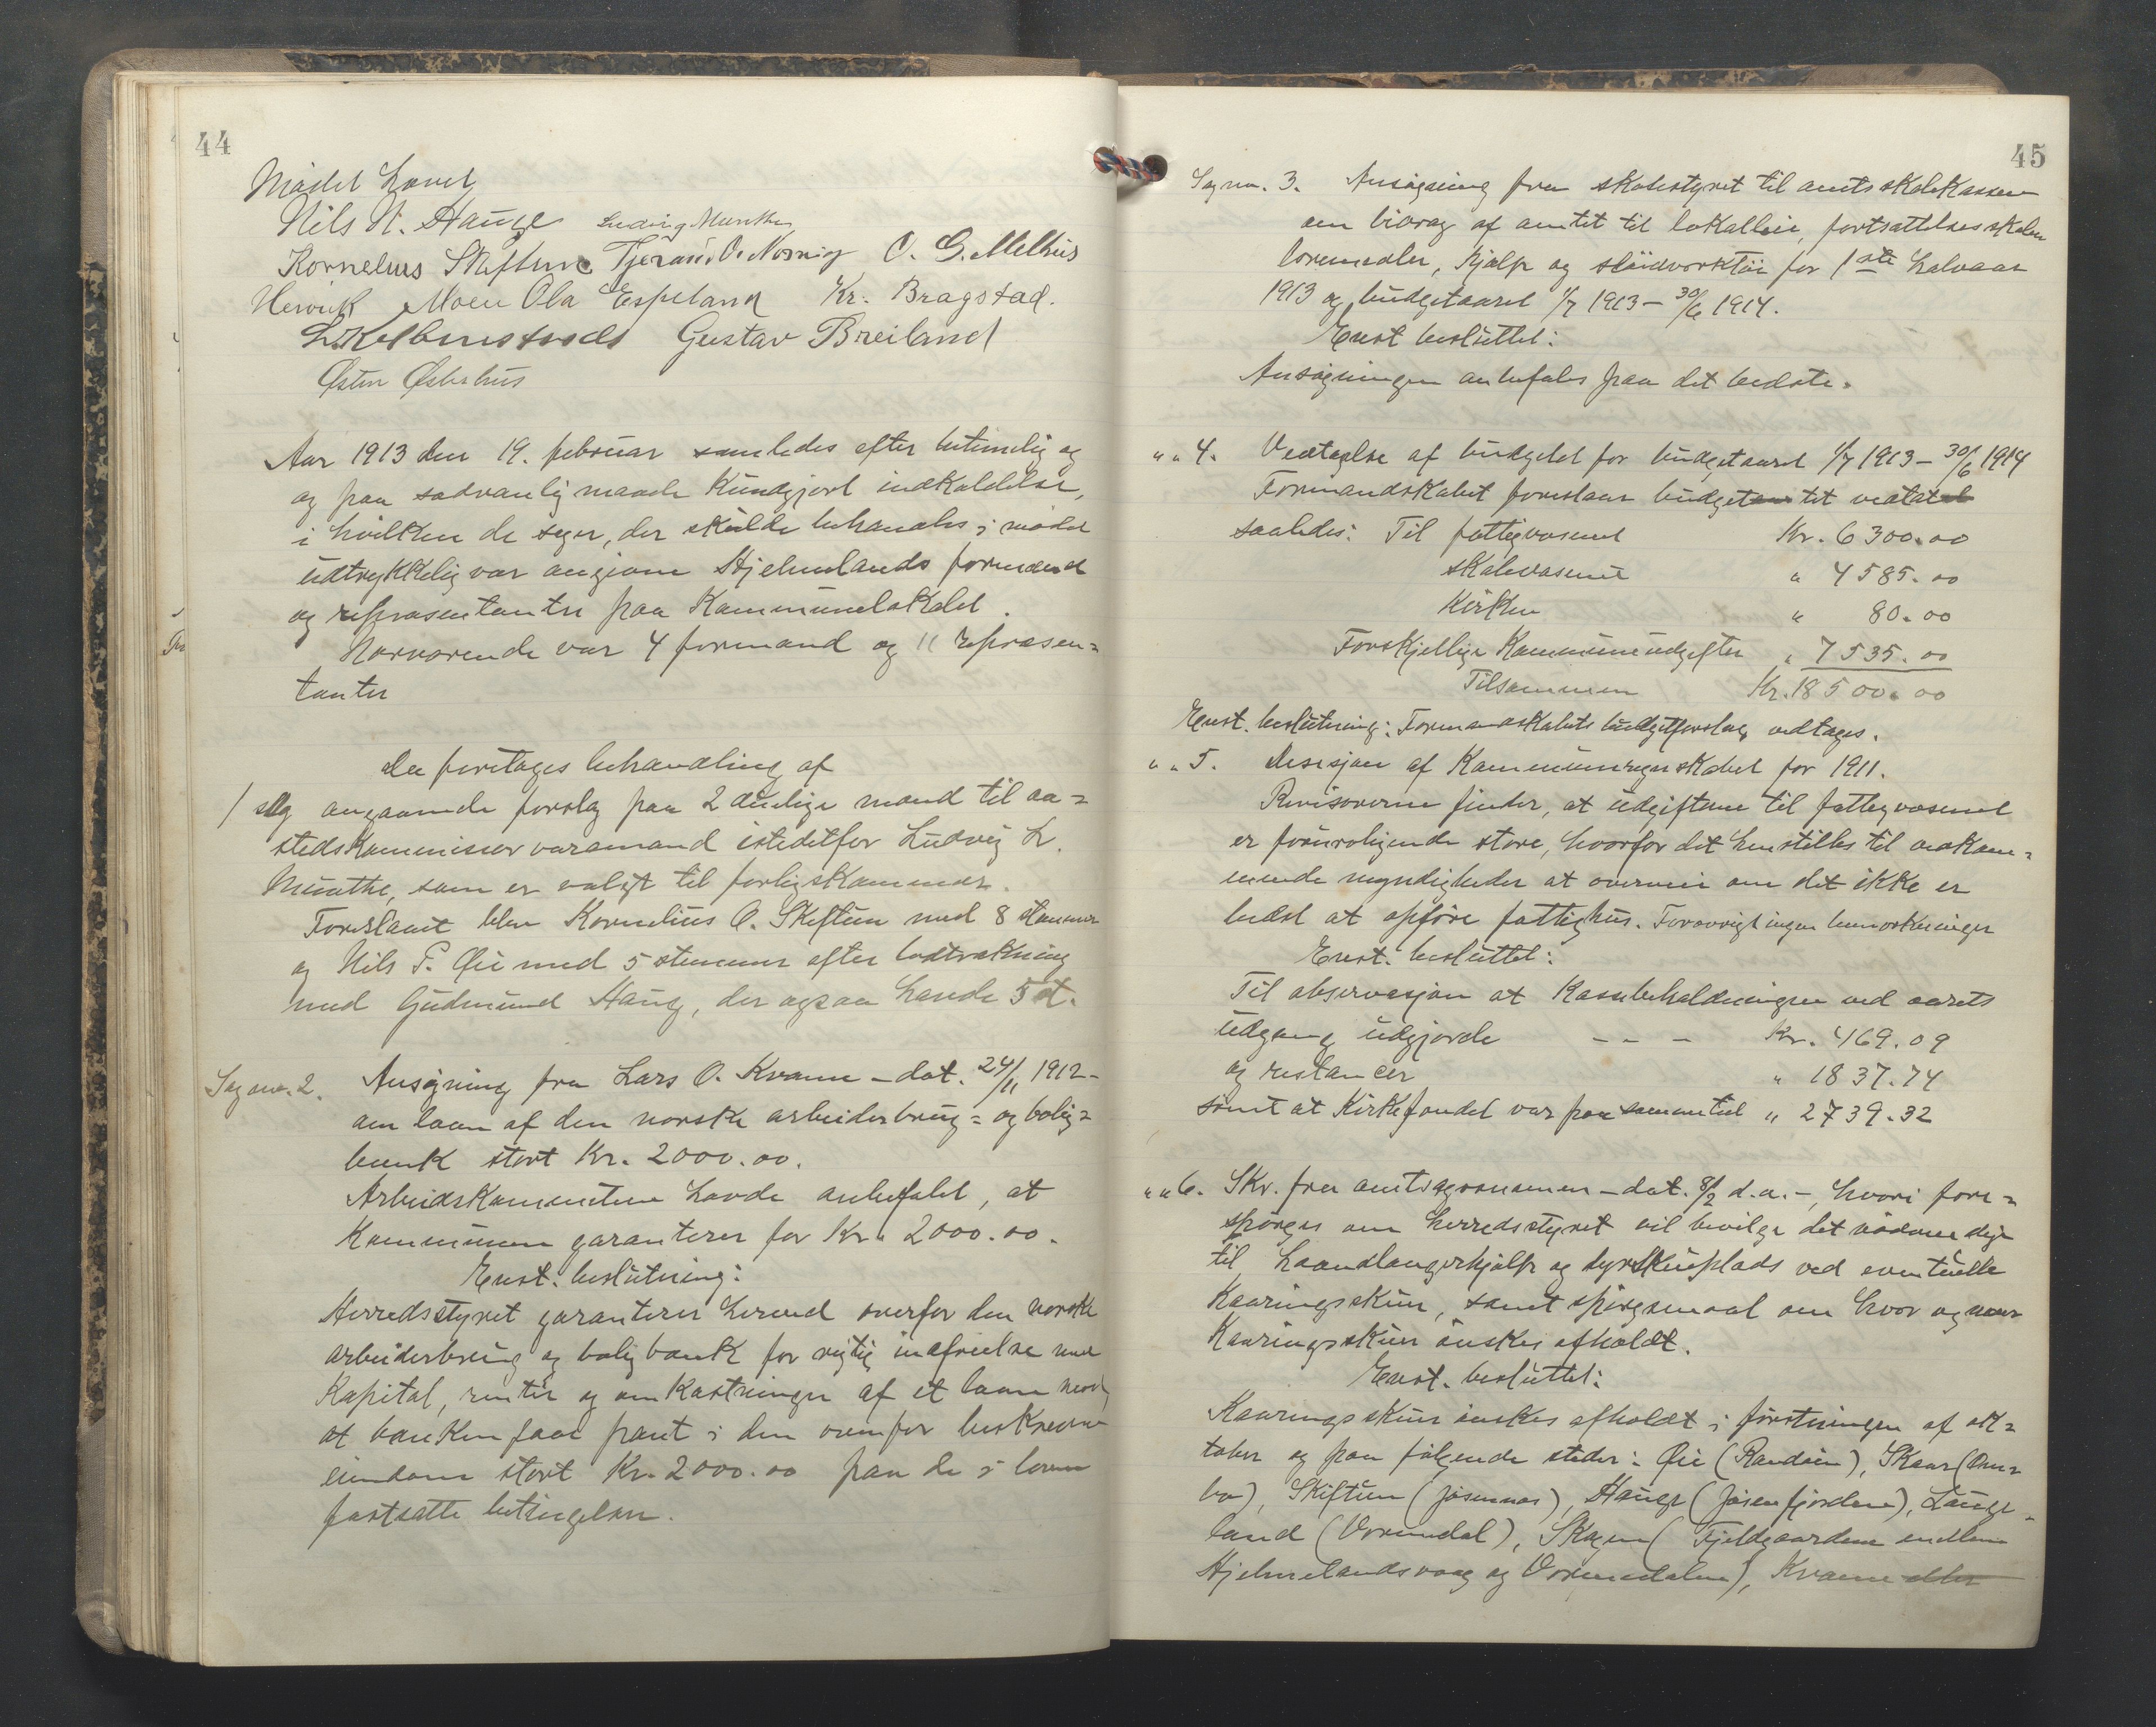 44
Mödet hævet
Nils N. Hauge Ludvig Munthe
Kornelius Skiftun Tjerand O. O. G. Melhus
Henrik Moen Ola Espeland Kr. Bragstad.
Gustav Breiland
Östen Österhus
Aar 1913 den 19. februar samledes efter betimelig og
og paa sædvanlig maade kundgjort indkaldelse,
i hvilken de sager, der skulde behandles i mödet
udtrykkelig var angivne Hjelmelands formænd
og repræsentanter paa Kommunelokalet.
Nærværende var 4 formænd og 11 repræsen=
tanter
Der foretages behandling af
1 Sag angaaende forslag paa 2 duelige mænd til aa=
stedskommissær varamand istedetfor Ludvig L.
Munthe, som er valgt til forligskommisær.
Foreslaaet blev Kornelius O. Skiftun med 8 stemmer
og Nils P. Öie med 5 stemmer efter lodtrækning
med Gudmund Haug, der ogsaa havde 5 st.
Sag nr. 2. Ansögning fra Lars O. Kvame – dat. 24/11 1912 –
om laan af den norske arbeiderbrug= og bolig=
bank stort Kr. 2000.00.
Arbeidskomiteen havde anbefalet, at
Kommunen garanterer for Kr. 2000.00.
Enst. beslutning:
Herredsstyret garanterer herved overfor den norske
arbeiderbrug og boligbank for rigtig indfrielse med
Kapital, renter og omkostninger af et laan mod,
at banken faar pant i den ovenfor beskrevne
eiendom stort Kr. 2000.00 paa de i loven
fastsatte betingelser.
45
Sag nr. 3. Ansögning fra skolestyret til amtsskolekassen
om bidrag af amtet til lokalleie, fortsættelsesskolen
læremidler, hjælp og slöidværktöi for 1ste halvaar
1913 og budgetaaret 1/7 1913 – 30/6 1914.
Enst besluttet:
Ansögningen anbefales paa det bedste.
" " 4. Vedtagelse af budgetet for budgetaaret 1/7 1913 – 30/6 1914
Formandskabet foreslaar budgettet vedtat
saaledes: Til fattigvæsenet Kr. 6300.00
Skolevæsenet " 4585.00
Kirken " 80.00
Forskjellige Kommuneudgifter " 7535.00
Tilsammen Kr. 18500.00
Enst. beslutning: Formandskabets budgetforslag vedtages.
" " 5. Desisjon af Kommuneregnskabet for 1911.
Revisorerne finder, at udgifterne til fattigvæsenet
er foruroligende store, hvorfor det henstilles til vedkom=
mende myndigheder at overveie om det ikke er
bedst at opföre fattighus. Forövrigt ingen bemærkninger
Enst. besluttet:
Til observasjon at Kassebeholdningen ved aarets
udgang udgjorde – – – Kr. 469.09
og restancer " 1837.74
samt at Kirkefondet var paa samme tid " 2739.32
" " 6. Skr. fra amtsagronomen – dat. 8/2 d.a. –, hvori fore=
spörges om herredsstyret vil bevilge det nödvendige
til haandlangerhjælp og dyrskueplads ved eventuelle
Kaaringsskuer, samt spörgsmaal om hvor og naar
Kaaringsskuer önskes afholdt.
Enst. besluttet:
Kaaringsskuer önskes afholdt i förstningen af ok=
tober og paa fölgende steder: Öie (Randöen), Skaar (Om=
bo), Skiftun (Jösennæs), Hauge (Jösenfjorden), Lauge=
land (Vormedal), Skagen (Fjeldgaardene mellem
Hjelmelandsvaag og Vormedalen), Kvame eller